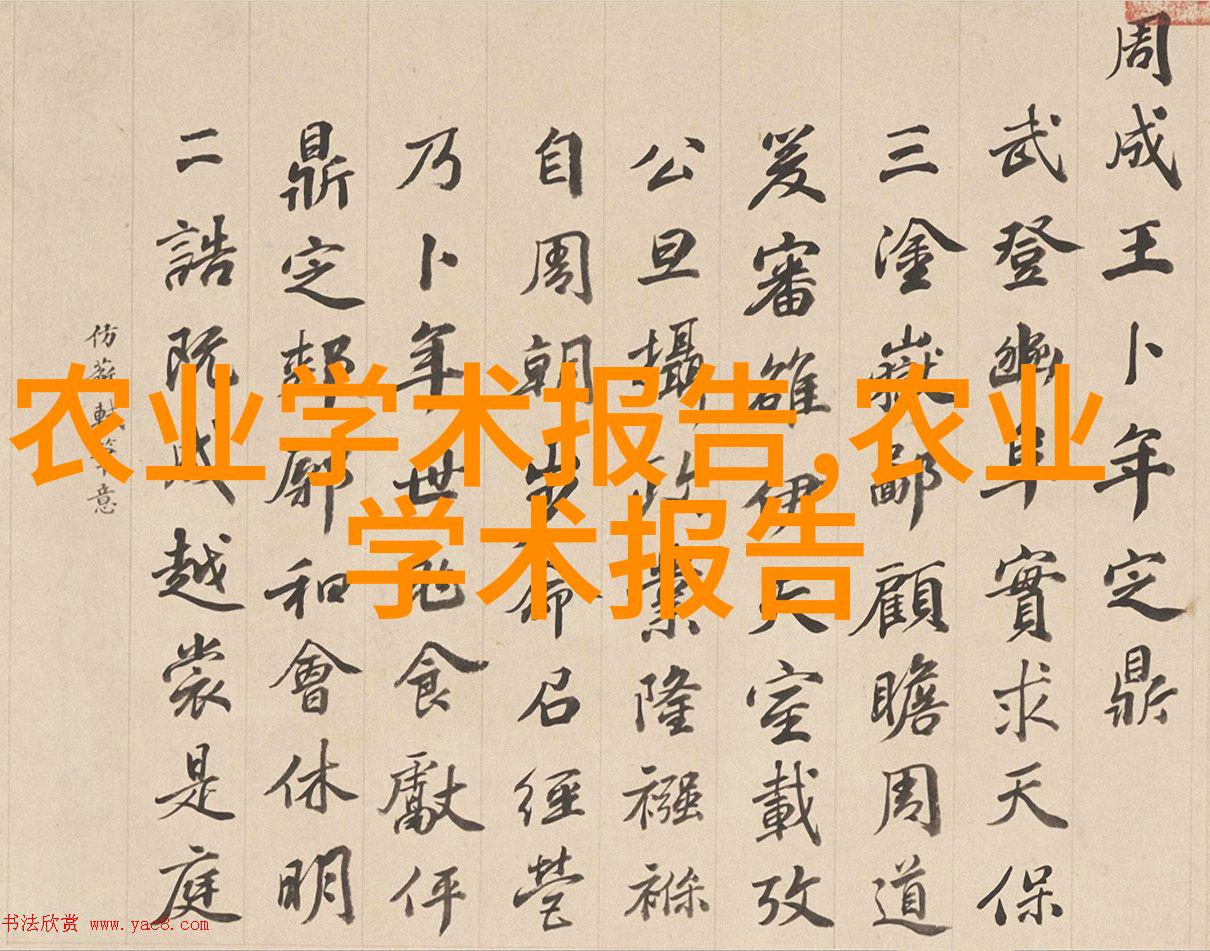 农业学术报告,农业
学术报告
周成王卜年定鼎
武登豳阜實求天保
三塗嶽鄙顧瞻周道
爰審雒伊天室載攷
公旦攝政業隆襁褓
自周朝步命召經營
乃卜年世兆食獻伻
鼎定郟鄏和會休明
二誥既成越裳是庭
仿蘇軾筆意
书法欣赏 www.yac8.com